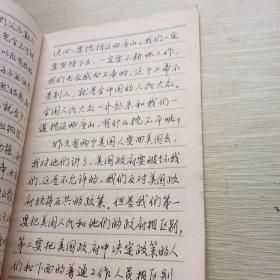 决心，要挖掉这两座山。我们一定
要坚持下去，一定要不断地工作，
我们也会感动上帝的。这个上帝不
是别人，就是全中国的人民大众。
全国人民大众一齐起来和我们一
道挖这两座山，有什么挖不平呢？
昨天有两个美国人要回美国去，
我对他们讲了，美国政府要破坏我
们，这是不允许的。我们反对美国政
府扶蒋反共的政策。但是我们第一
要把美国人民和他们的政府相区别，
第二要把美国政府中决定政策的人
们和下面的普通工作人员相区别